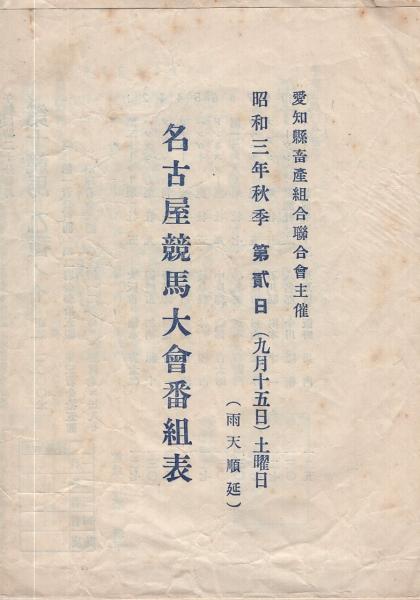 愛知縣畜產組合聯合會主催
昭和三年秋季 第貳日(九月十五日)土曜日
(雨天順延)
名古屋競馬大會番組表